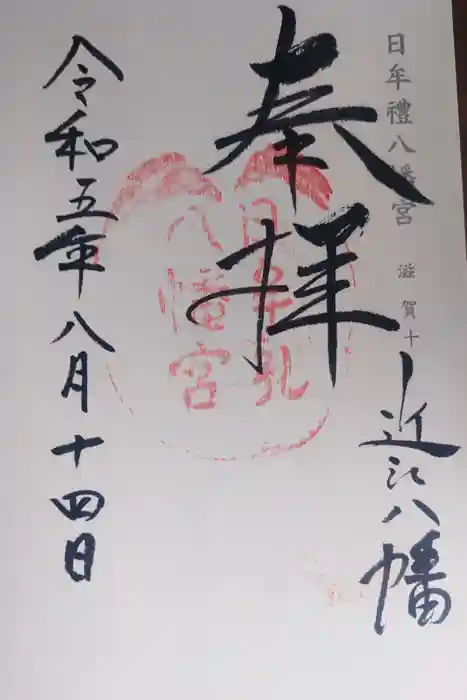 日牟禮八幡宮 滋賀十
近江八幡
奉拝
日牟礼
八幡宮
令和五年八月十四日